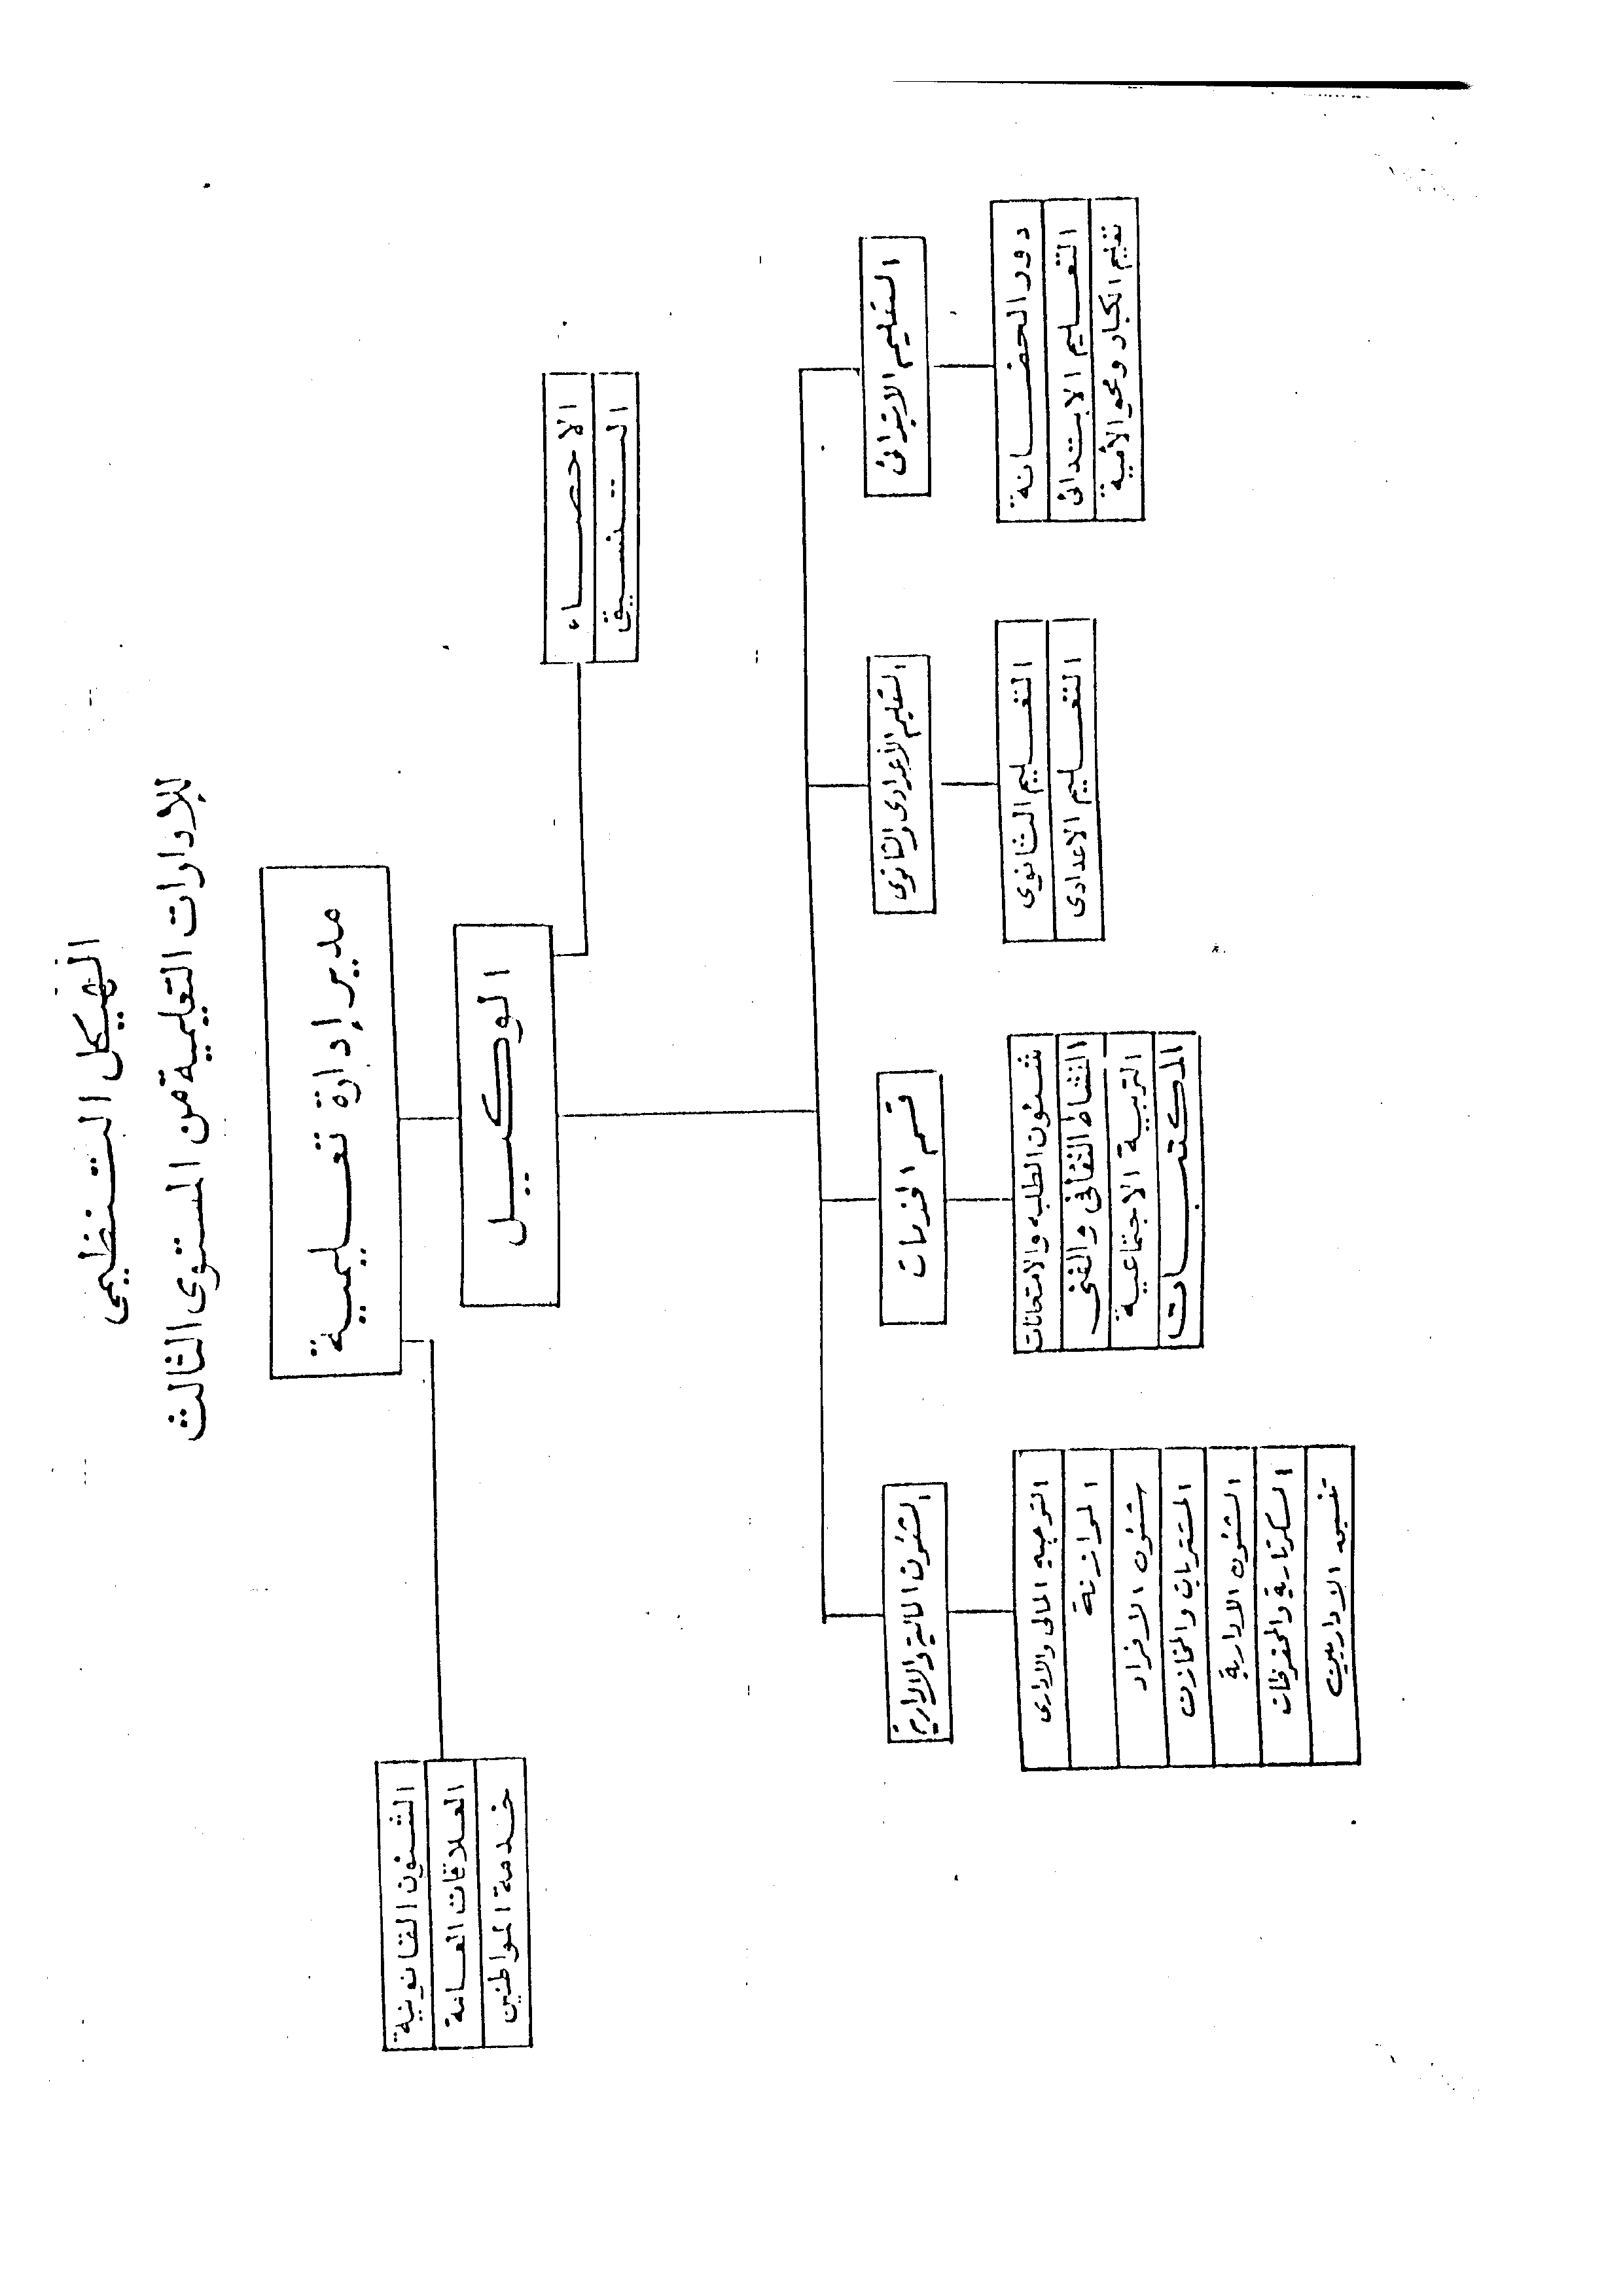 الهيكل التنظيمى
للإدارات التعليمية من المستوى الثالث
مدير إدارة تعليمية
الوكيل
الشئون القانونية
العلاقات العامة
خدمة المواطنين
الاحصاء
التنسيق
التعليم الابتدائى
دور الحضانة
التعليم الابتدائى
تعليم الكبار ومحو الأمية
التعليم الأعدادى والثانوى
التعليم الثانوى
التعليم الاعدادى
قسم الخدمات
شئون الطلبه والامتحانات
النشاط الثقافى والفنى
التربية الاجتماعية
المكتبات
الشئون المالية والادارية
التوجيه المالى والادارى
الموازنة
شئون الافراد
المشتريات والمخازن
الشئون الادارية
السكرتارية والمحفوظات
الاداريين